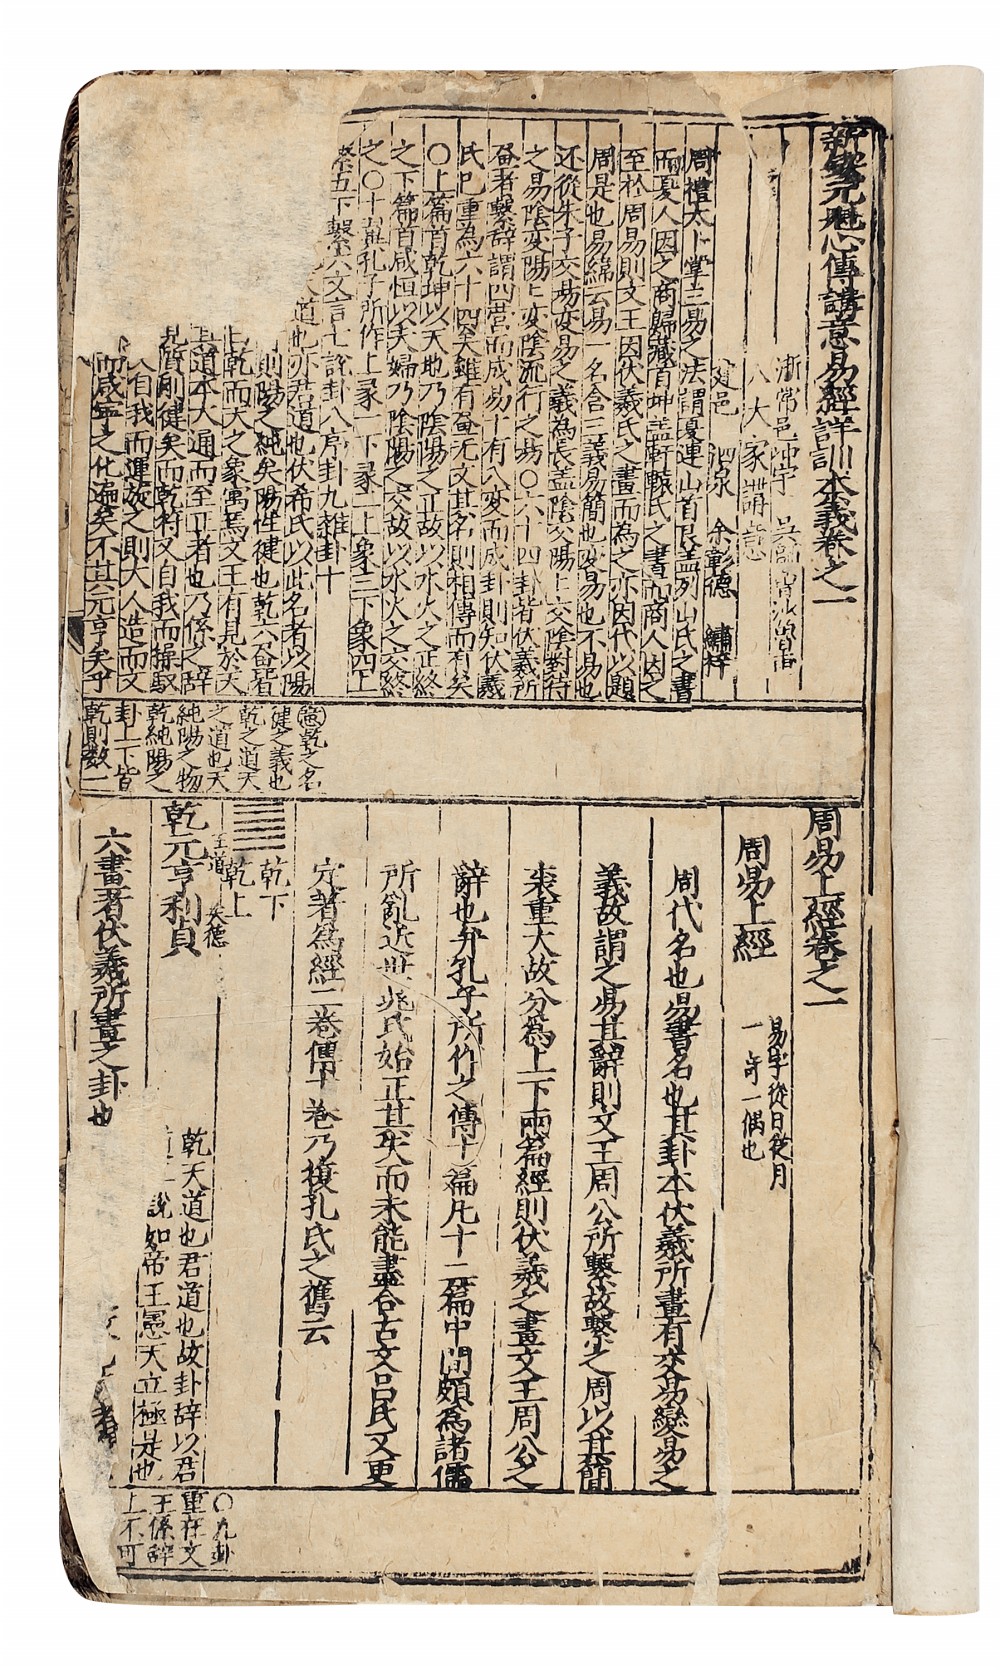 新鋟元魁心傳講意易經詳訓本義卷之一
浙常邑
八大家講意
建邑 泗泉 余彰德 繡梓
周禮太卜掌三易之法謂夏連山首艮盖列山氏之書
而夏人因之商歸藏首坤盖軒轅氏之書而商人因之
至於周易則文王因伏羲氏之書而為之亦因代以題
周是也易緯云易一名含三義易簡也変易也不易也
还從朱子交易变易之義為長盖陰交陽上交陰對待
之易陰变陽上变陰流行之易〇六十四卦皆伏羲所
畫者繫辞謂四营而成易十有八变而成卦則知伏羲
氏已重為六十四矣雖有畫无文其名則相傳而有矣
〇上篇首乾坤以天地乃陰陽之正故以水火之正終
之下篇首咸恒以夫婦乃陰陽之交故以水火之交終
之〇十翼孔子所作上彖一下彖二上象三下象四上
繫五下繫六文言七說卦八序卦九雜卦十
道也亦君道也伏希氏以此名者以陽
則陽之純矣陽性健也乾六畫皆
上乾而天之象寓焉文王有見於天
道本大通而至正者也乃係之辞
質剛健矣而乾符又自我而操馭
人自我而運旋之則大人造而文
而咸寧之化遍矣不其元亨矣乎
意乾之名
健之義也
乾之道天
之道也天
純陽之物
乾純陽之
卦上下皆
乾則数一
周易上經卷之一
周易上經
易字從日從月
一竒一偶也
周代名也易書名也其卦本伏羲所畫有交易變易之
義故謂之易其辭則文王周公所繫故繫之周以其簡
袠重大故分為上下兩篇經則伏羲之畫文王周公之
辭也并孔子所作之傳十篇凡十二篇中間頗為諸儒
所亂近世晁氏始正其失而未能盡合古文呂氏又更
定著為經二卷傳十卷乃復孔氏之舊云
乾下
乾上
王道 天德
乾元亨利貞
乾天道也君道也故卦辞以君
說如帝王憲天立極是也
六畫者伏羲所畫之卦也
〇九卦
重在文
王係辞
上不可